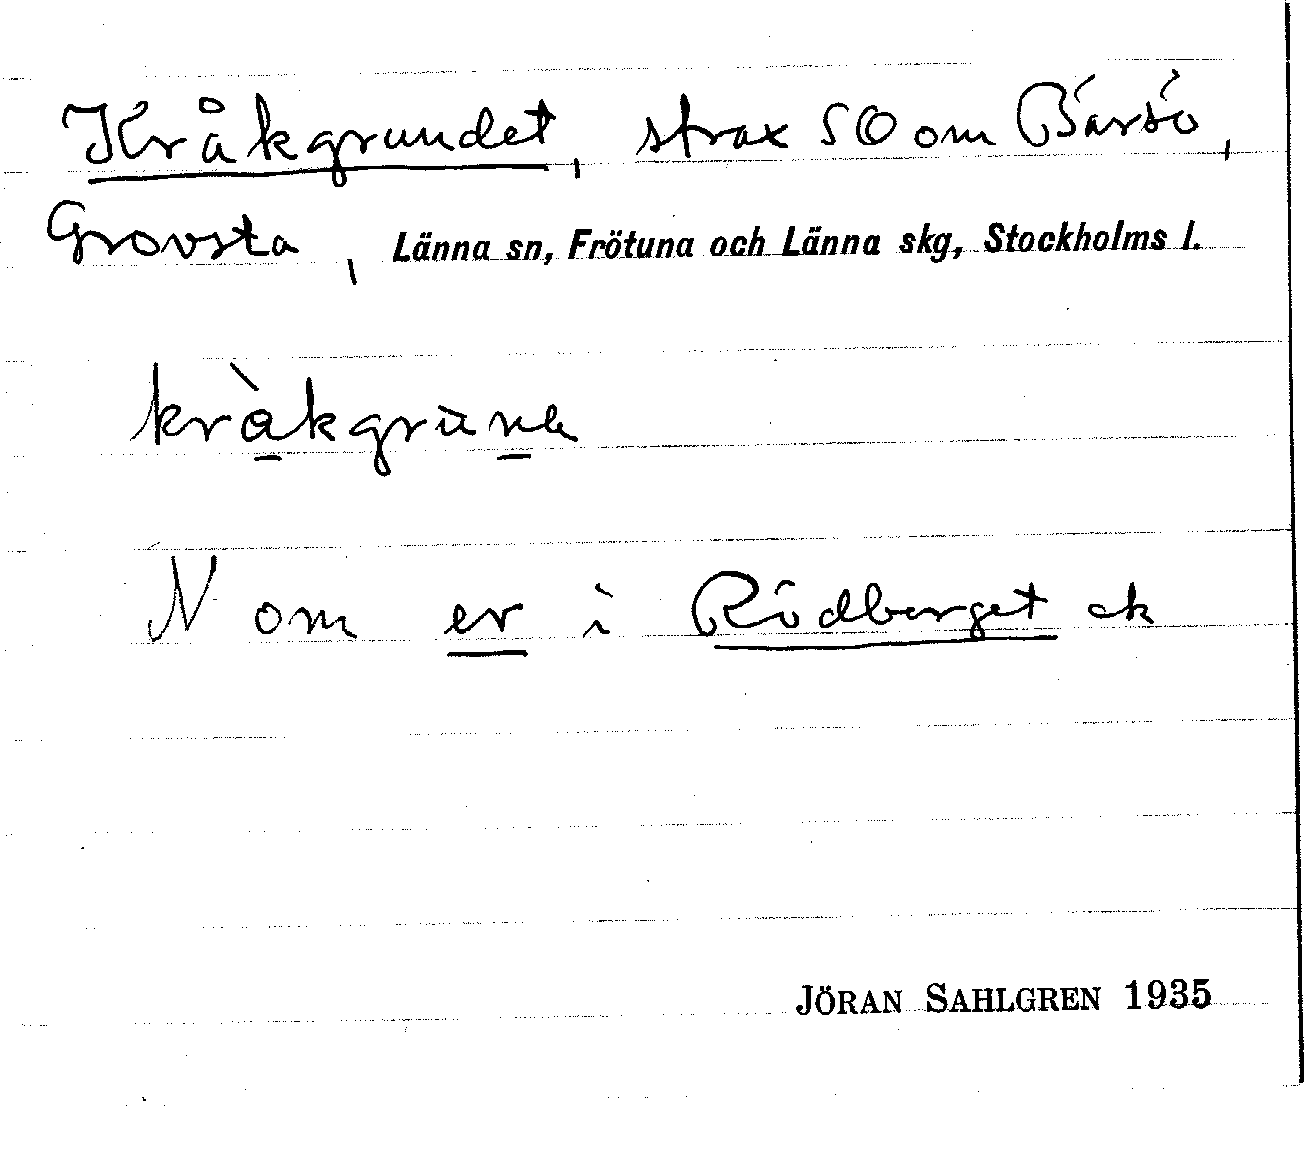 Kråkgrundet, strax SO om Bärsö,
Grovsta, Länna sn, Frötuna och Länna skg, Stockholms l.
N om er i Rödberget ek
JÖRAN SAHLGREN 1935